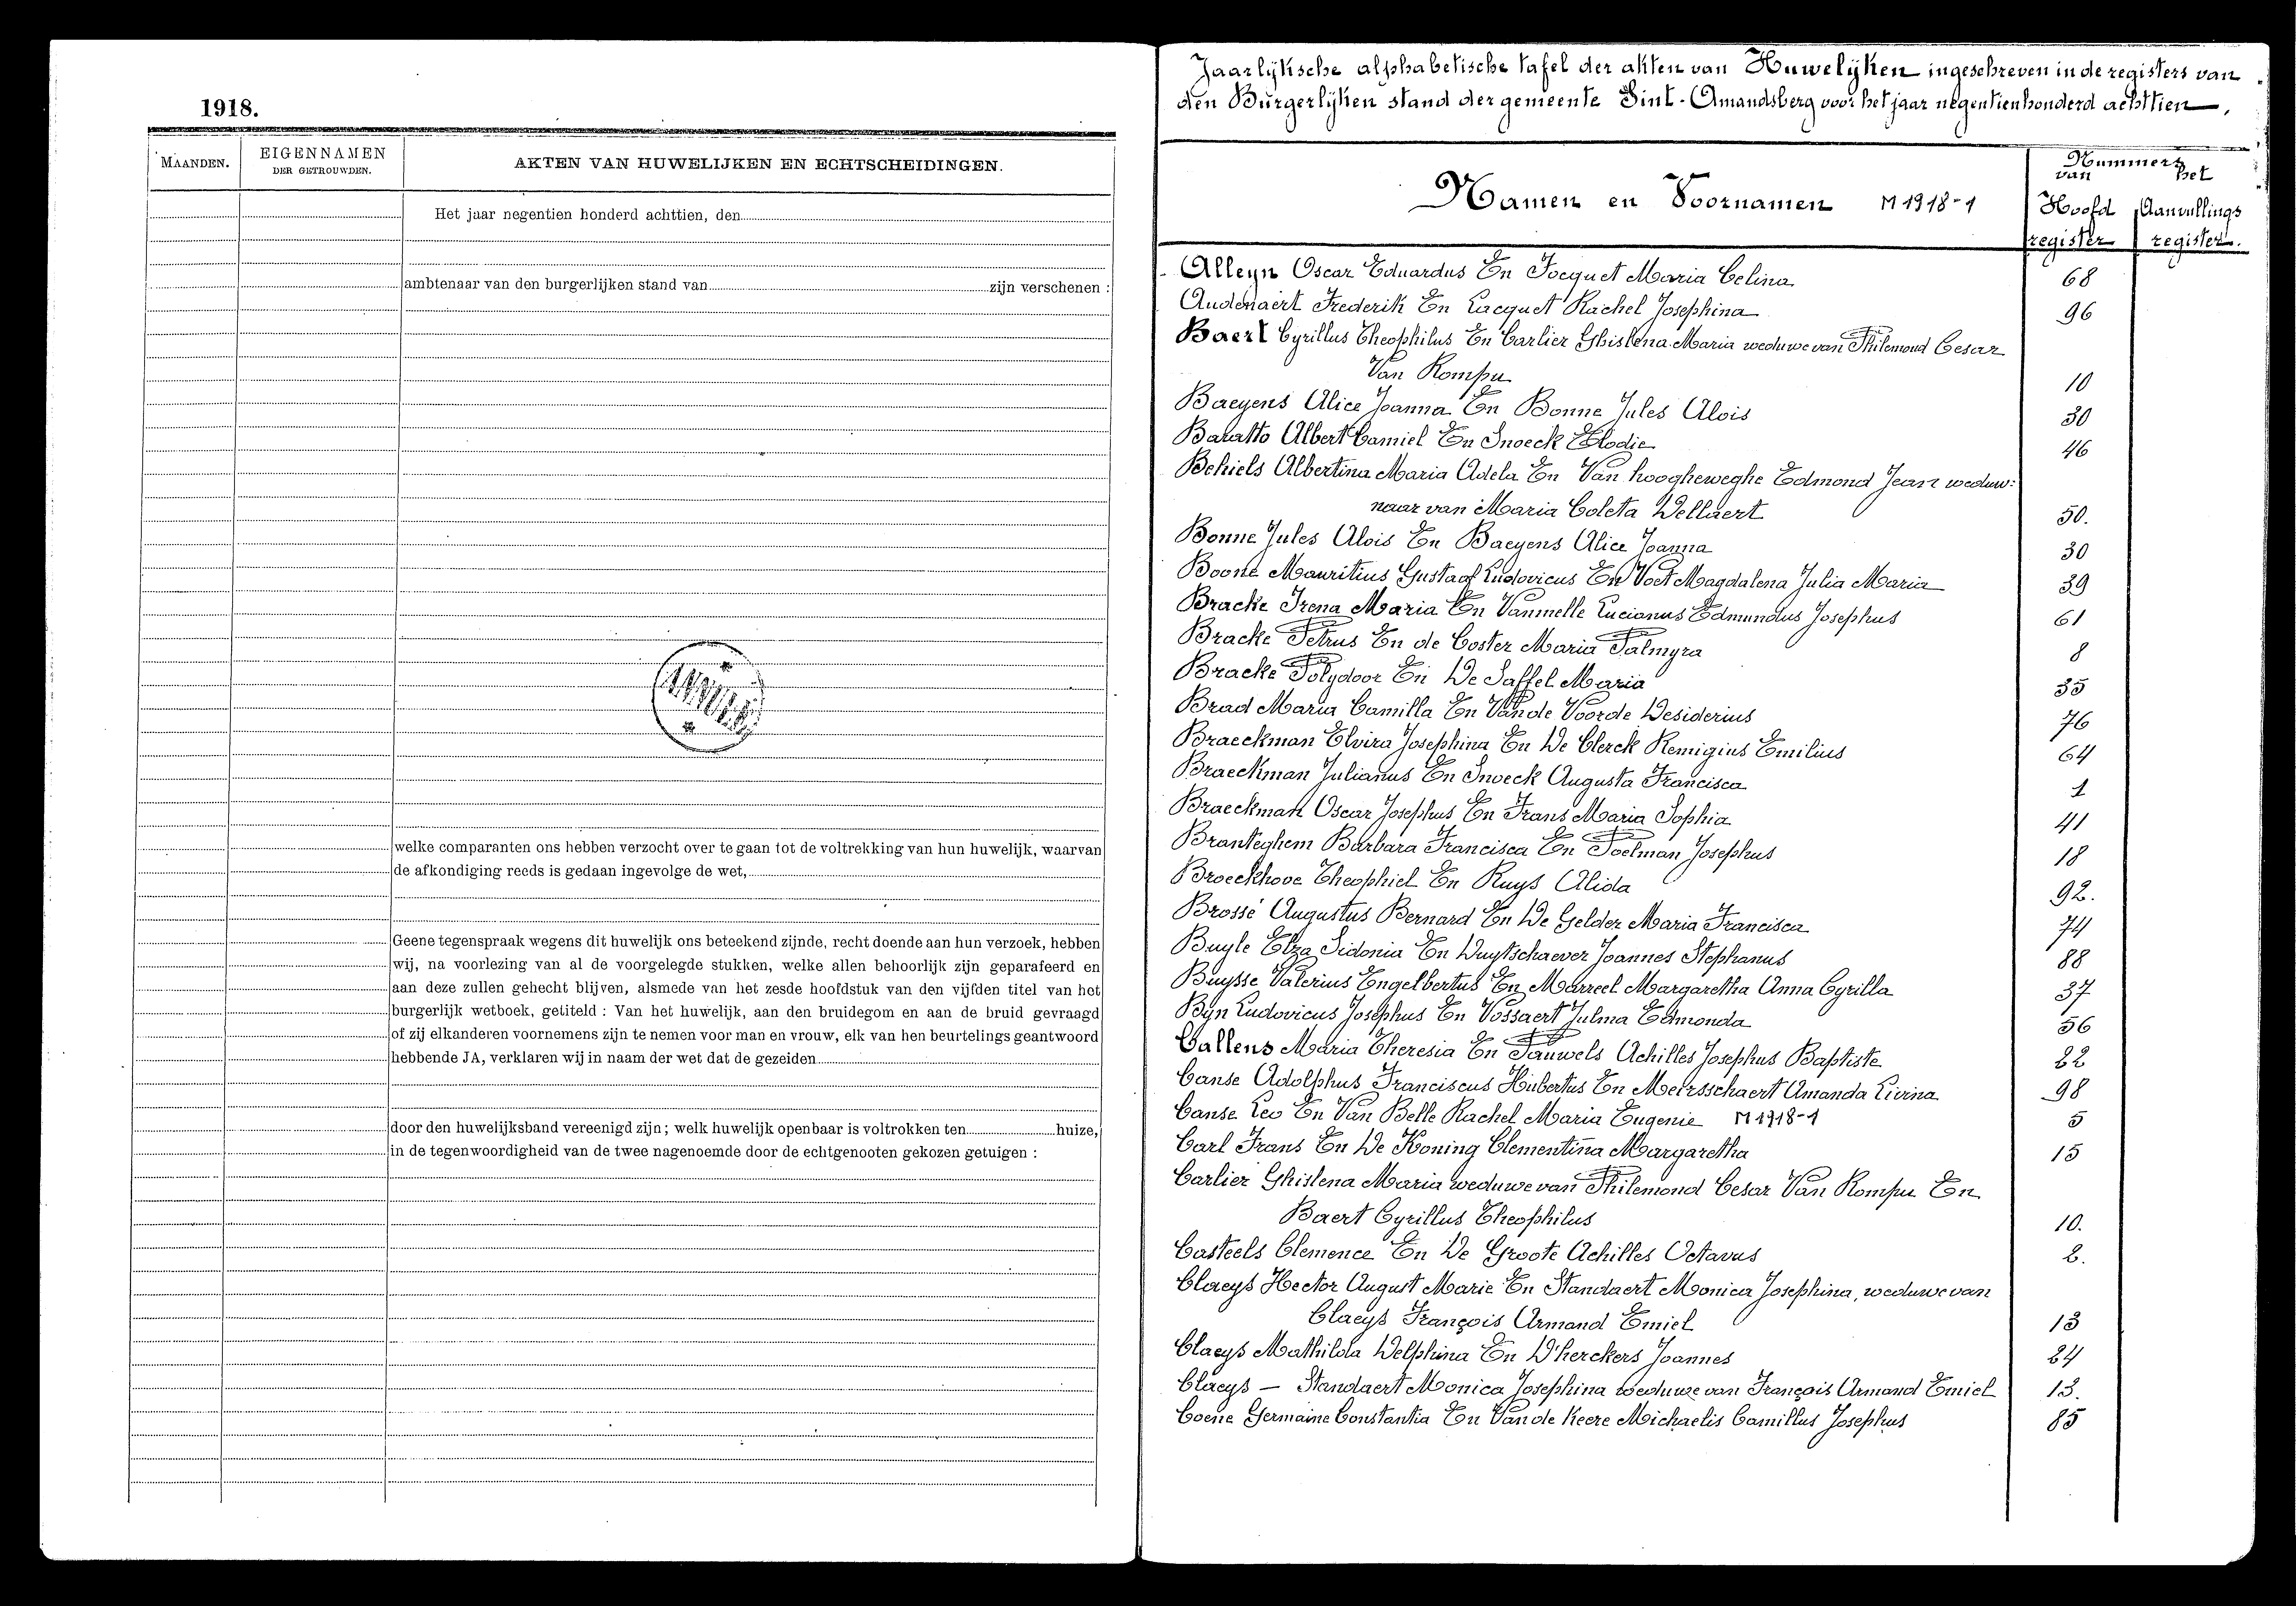 1918.
MAANDEN.
EIGENNAMEN
DER GETROUWDEN.
AKTEN VAN HUWELIJKEN EN ECHTSCHEIDINGEN.
Het jaar negentien honderd achttien, den
ambtenaar van den burgerlijken stand van zijn verschenen :
welke comparanten ons hebben verzocht over te gaan tot de voltrekking van hun huwelijk, waarvan
de afkondiging reeds is gedaan ingevolge de wet,
Geene tegenspraak wegens dit huwelijk ons beteekend zijnde, recht doende aan hun verzoek, hebben
wij, na voorlezing van al de voorgelegde stukken, welke allen behoorlijk zijn geparafeerd en
aan deze zullen gehecht blijven, alsmede van het zesde hoofdstuk van den vijfden titel van het
burgerlijk wetboek, getiteld : Van het huwelijk, aan den bruidegom en aan de bruid gevraagd
of zij elkanderen voornemens zijn te nemen voor man en vrouw, elk van hen beurtelings geantwoord
hebbende JA, verklaren wij in naam der wet dat de gezeiden
door den huwelijksband vereenigd zijn ; welk huwelijk openbaar is voltrokken ten huize,
in de tegenwoordigheid van de twee nagenoemde door de echtgenooten gekozen getuigen :
Jaarlijksche alphabetische tafel der akten van Huwelijken ingeschreven in de registers van
den Burgerlijken stand der gemeente Sint-Amandsberg voor het jaar negentienhonderd achttien.
Namen en Voornamen M 1918-1
Nummers
van het
Hoofd Aanvullings
register register.
Alleyn Oscar Eduardus En Jocquet Maria Celina 68
Audenaert Frederik En Lacquet Rachel Josephina 96
Baert Cyrillus Theophilus En Carlier Ghislena Maria weduwe van Philemond Cesar
Van Rompu 10
Baeyens Alice Joanna En Bonne Jules Alois 30
Baratto Albert Camiel En Snoeck Elodie 46
Behiels Albertina Maria Adela En Van hoogheweghe Edmond Jean weduw:
naar van Maria Coleta Dellaert 50.
Bonne Jules Alois En Baeyens Alice Joanna 30
Boone Mauritius Gustaaf Ludovicus En Voet Magdalena Julia Maria 39
Bracke Irena Maria En Vanmelle Lucianus Edmundus Josephus 61
Bracke Petrus En de Coster Maria Palmyra 8
Bracke Polydoor En De Saffel Maria 35
Brad Maria Camilla En Van de Voorde Desiderius 76
Braeckman Elvira Josephina En De Clerck Remigius Emilius 64
Braeckman Julianus En Snoeck Augusta Francisca 1
Braeckman Oscar Josephus En Frans Maria Sophia 41
Branteghem Barbara Francisca En Poelman Josephus 18
Broeckhove Theophiel En Ruys Alida 92.
Brossé Augustus Bernard En De Gelder Maria Francisca 74
Buyle Elza Sidonia En Duytschaever Joannes Stephanus 88
Buysse Valerius Engelbertus En Marreel Margaretha Anna Cyrilla 37
Byn Ludovicus Josephus En Vossaert Julma Edmonda 56
Callens Maria Theresia En Pauwels Achilles Josephus Baptiste 22
Canse Adolphus Franciscus Hubertus En Meirsschaert Amanda Livina 98
Canse Leo En Van Belle Rachel Maria Eugenie M 1918-1 5
Carl Frans En De Koning Clementina Margaretha 15
Carlier Ghislena Maria weduwe van Philemond Cesar Van Rompu En
Baert Cyrillus Theophilus 10.
Casteels Clemence En De Groote Achilles Octavus 2.
Claeys Hector August Marie En Standaert Monica Josephina, weduwe van
Claeys François Armand Emiel 13
Claeys Mathilda Delphina En D'herckers Joannes 24
Claeys — Standaert Monica Josephina weduwe van François Armand Emiel 13.
Coene Germaine Constantia En Van de Keere Michaelis Camillus Josephus 85